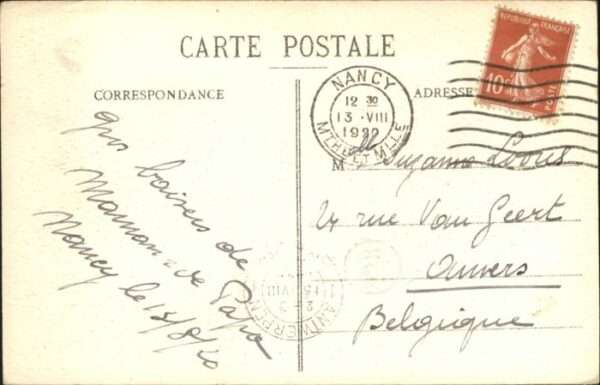 CARTE POSTALE
CORRESPONDANCE
ADRESSE
RÉPUBLIQUE FRANÇAISE
10c
POSTES
NANCY
12 30
13 · VIII
1920
MTHE ET MLLE
gros baisers de
Maman & de Papa
Nancy le 13/8/20
Mlle Suzanne Loores
24 rue Van Geert
Anvers
Belgique
ANTWERPEN
15 VIII